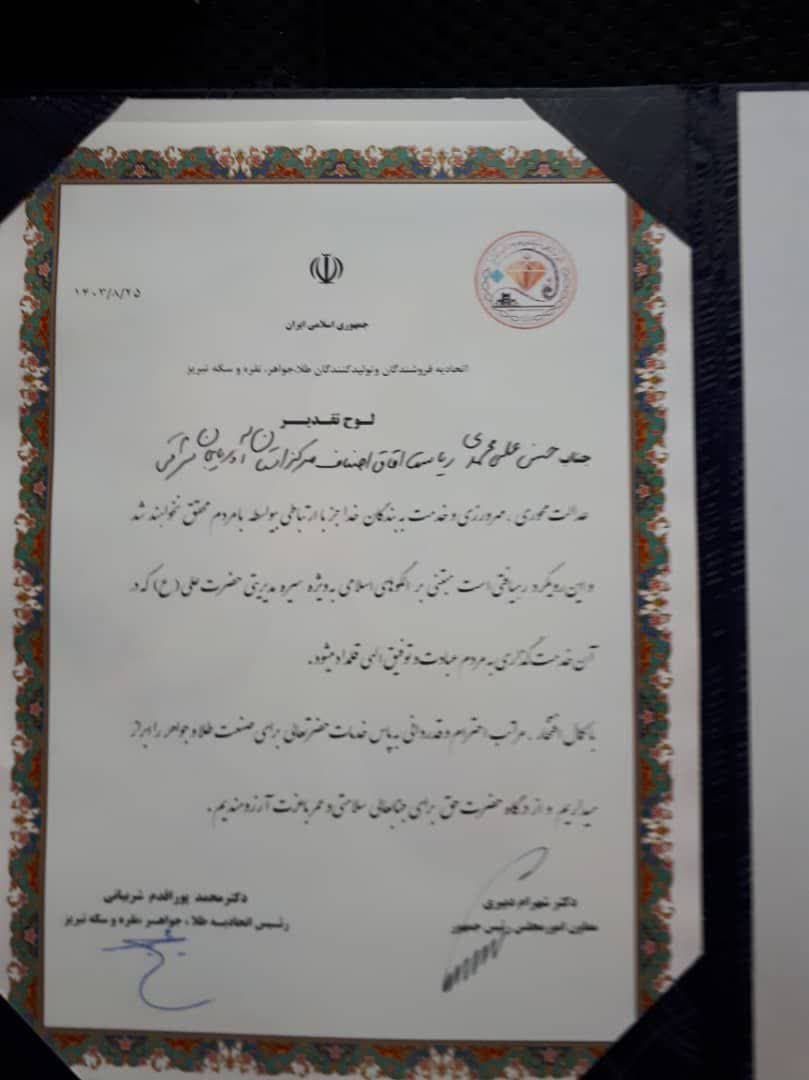 ۱۴۰۳/۸/۲۵
جمهوری اسلامی ایران
اتحادیه فروشندگان و تولیدکنندگان طلا، جواهر، نقره و سکه تبریز
لوح تقدیر
جناب حسن علی محمدی ریاست اتاق اصناف مرکز استان آذربایجان شرقی
عدالت محوری ، مهرورزی و خدمت به بندگان خدا جز با ارتباطی بیواسطه با مردم محقق نخواهند شد
و این رویکرد رهیافتی است مبتنی بر الگوهای اسلامی به ویژه سیره مدیریتی حضرت علی (ع) که در
آن خدمت گذاری به مردم عبادت و توفیق الهی قلمداد میشود.
با کمال افتخار ، مراتب احترام و قدردانی به پاس خدمات حضرتعالی برای صنعت طلا و جواهر را ابراز
میداریم و از درگاه حضرت حق برای جنابعالی سلامتی و عمر باعزت آرزومندیم .
دکتر شهرام دبیری
معاون امور مجلس رئیس جمهور
دکتر محمد پوراقدم شربیانی
رئیس اتحادیه طلا ، جواهر نقره و سکه تبریز